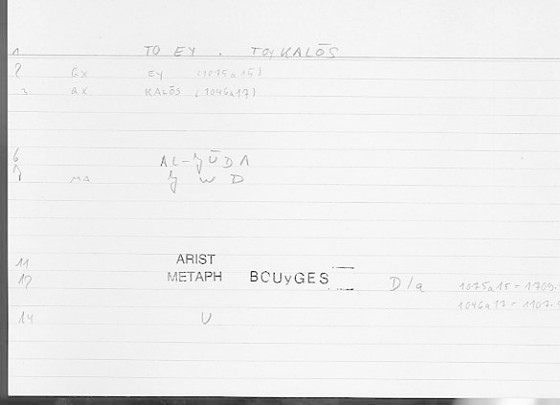 1 TO EY . TOy KALŌS
2 6x EY (1075a15)
3 ax KALŌS (1046a17)
6 AL-ǦŪDA
MA Ǧ W D
11 ARIST
12 METAPH BCUyGES D/a 1075a15 = 1709.
1046a17 = 1107.
14 U